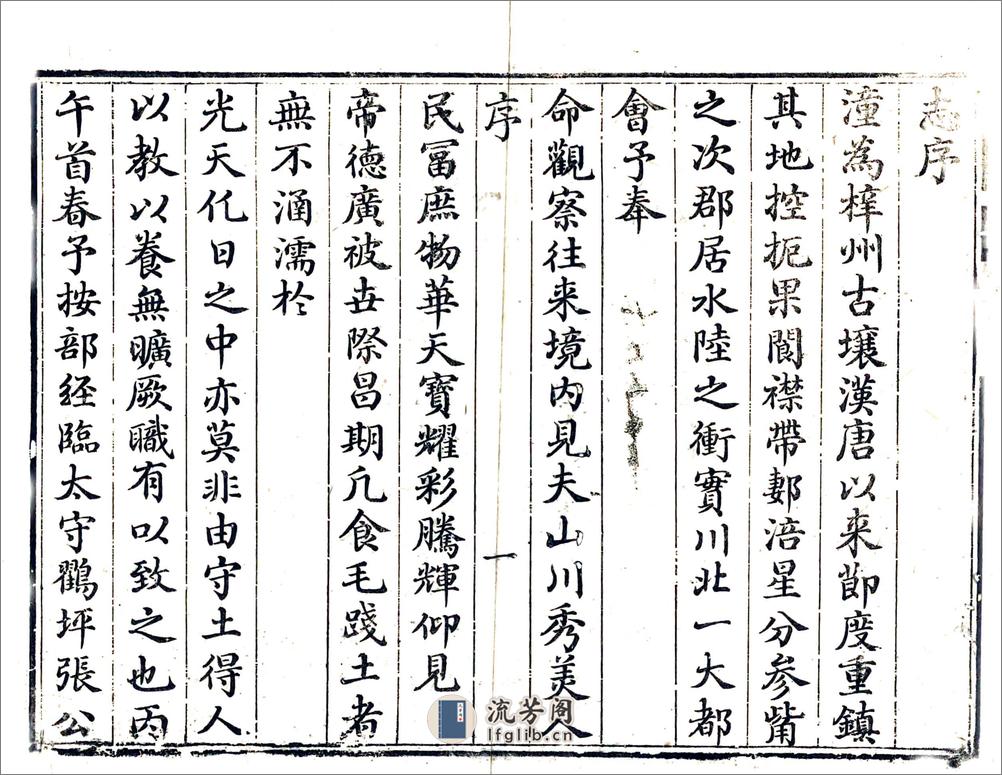 志序
潼為梓州古壤漢唐以来節度重鎮
其地控扼果閬襟帶郪涪星分参觜
之次郡居水陸之衝實川北一大都
會予奉
命觀察往来境内見夫山川秀美人
序
一
民冨庶物華天寶耀彩騰輝仰見
帝德廣被丗際昌期凡食毛踐土者
無不涵濡於
光天化日之中亦莫非由守土得人
以教以養無曠厥職有以致之也丙
午首春予按部經臨太守鸛坪張公
流芳阁
lfglib.cn